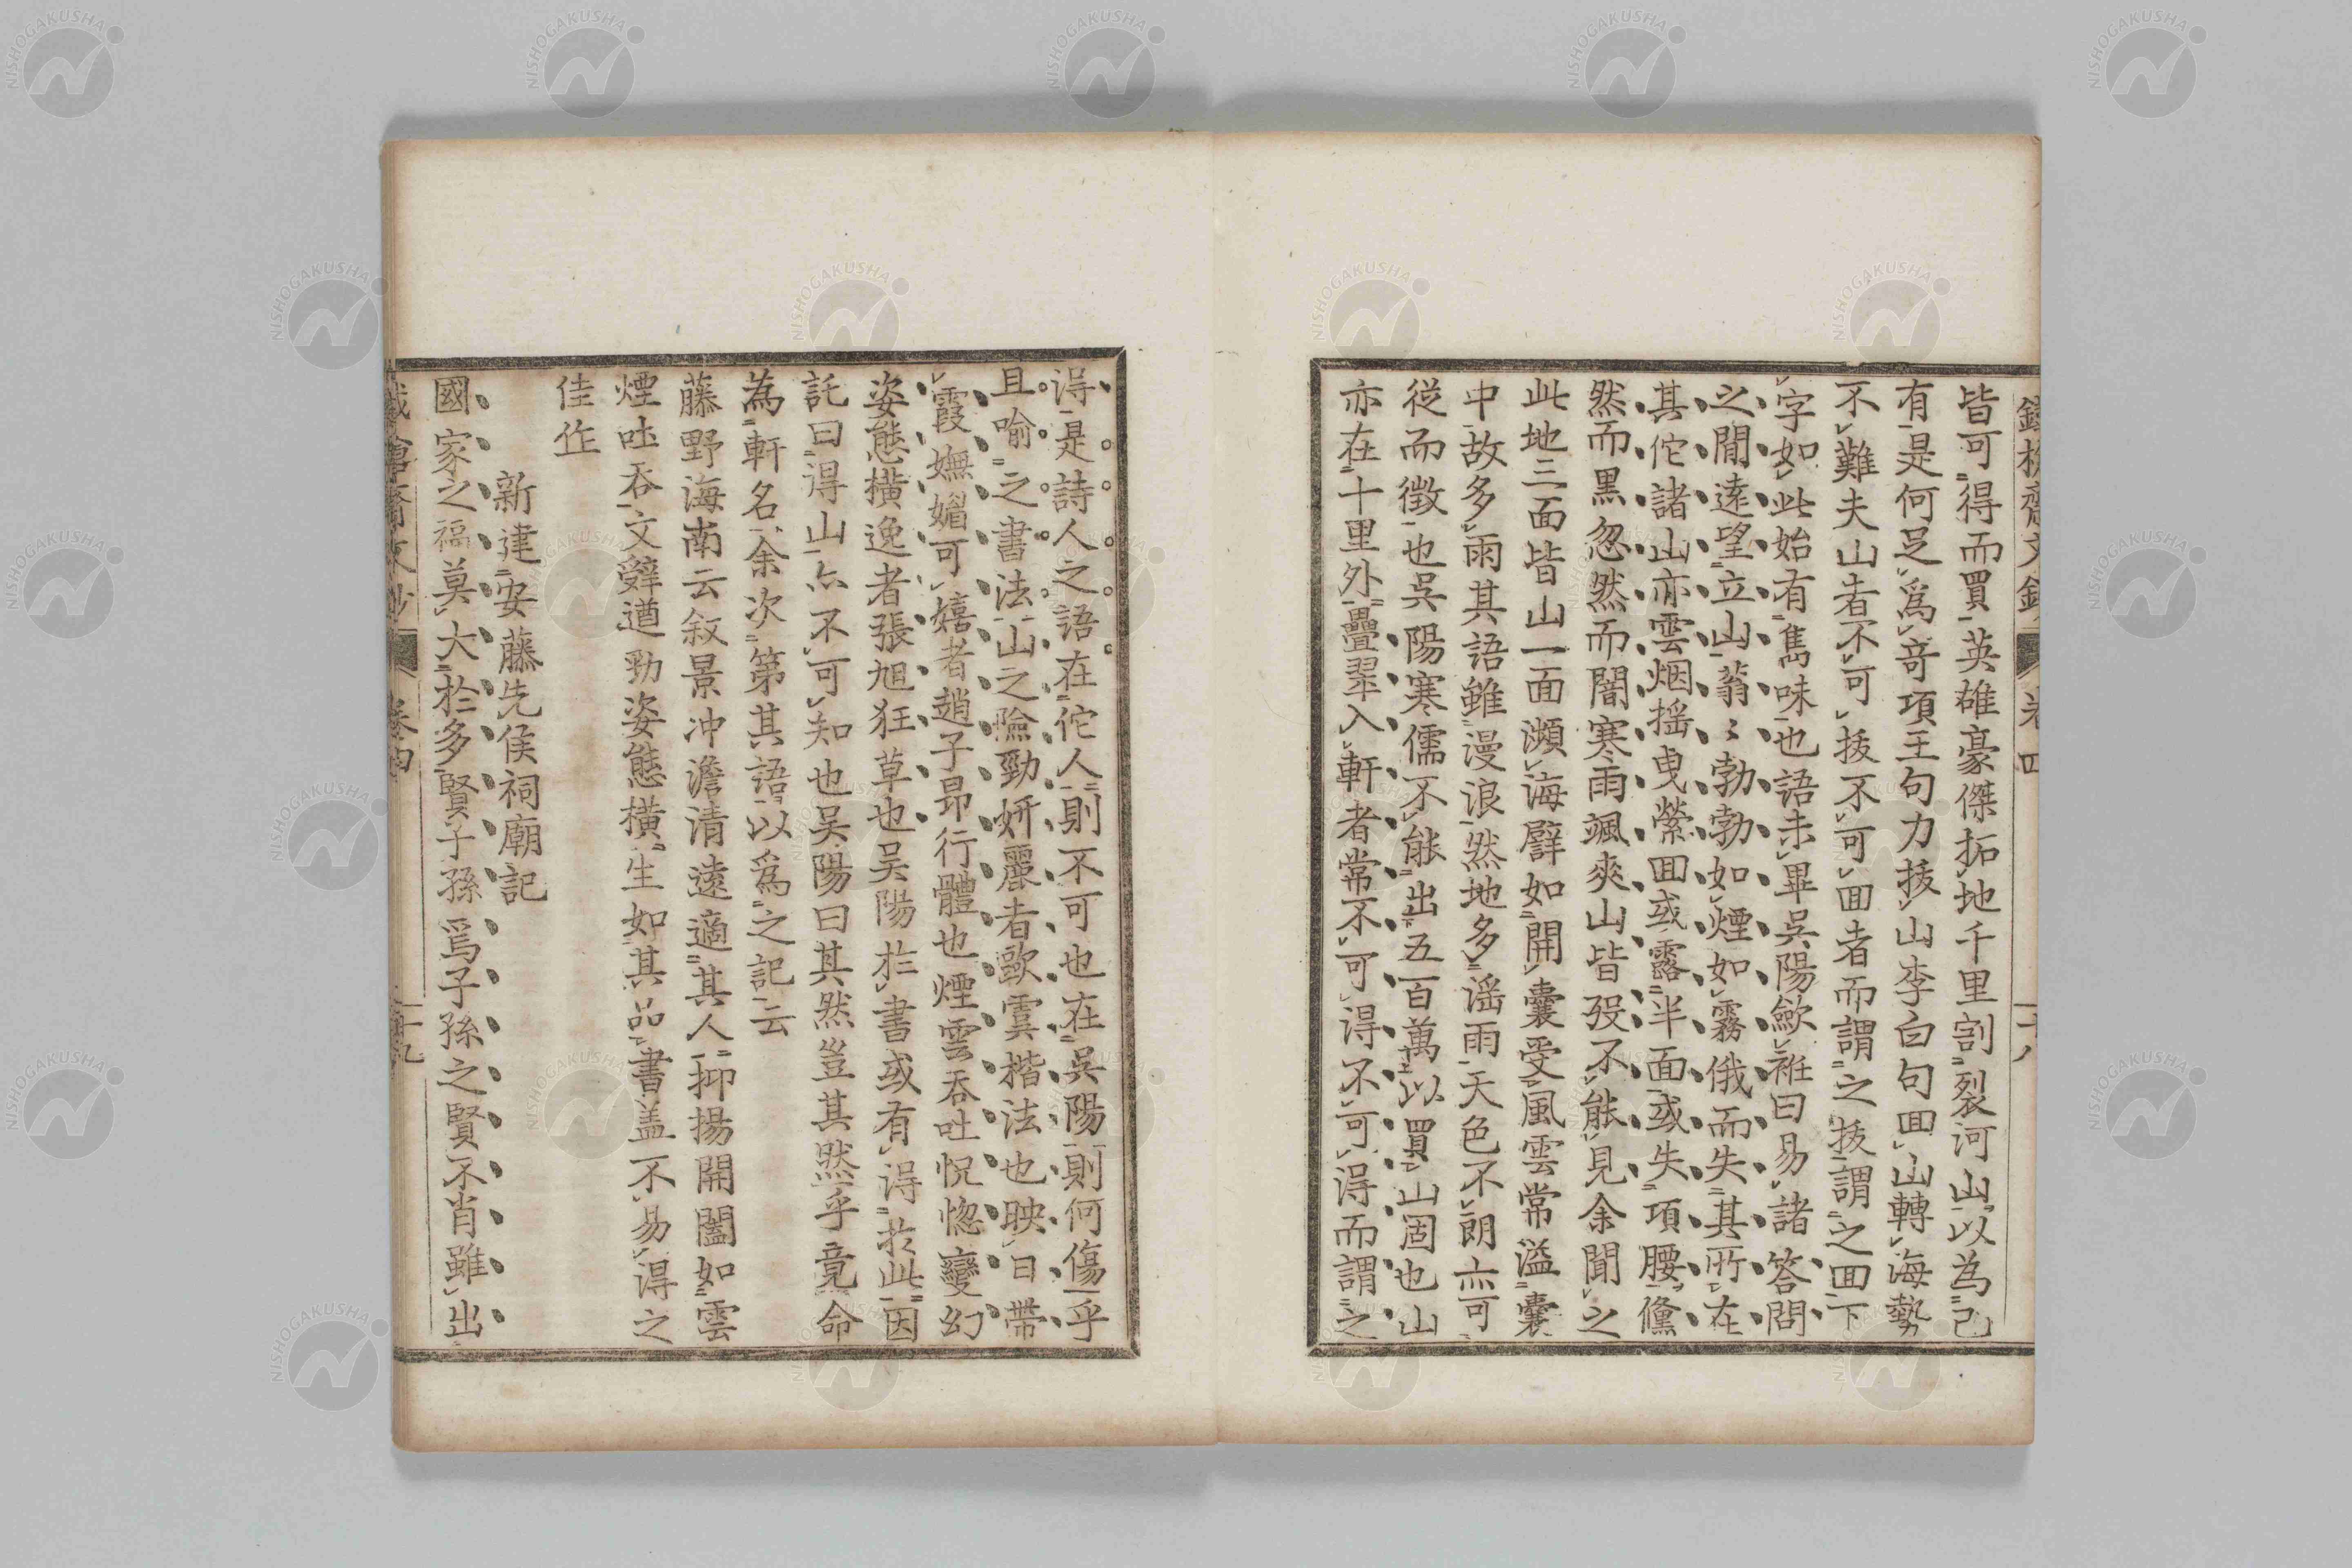 鐵槍齋文鈔 卷四 十八
皆可得而買英雄豪傑拓地千里割裂河山以為己
有是何足爲竒項王句力拔山李白句囬山轉海勢
不難夫山者不可拔不可囬者而謂之拔謂之囬下
字如此始有雋味也語未畢吳陽歛袵曰易諸答問
之間遠望立山蓊〻勃勃如煙如霧俄而失其所在
其佗諸山亦雲烟揺曳縈囬或露半面或失項腰儵
然而黒忽然而闇寒雨颯爽山皆歿不能見余聞之
此地三面皆山一面瀕海譬如開囊受風雲常溢囊
中故多雨其語雖漫浪然地多滛雨天色不朗亦可
從而徴也吳陽寒儒不能出五百萬以買山固也山
亦在十里外疊翠入軒者常不可得不可得而謂之
得是詩人之語在佗人則不可也在吳陽則何傷乎
且喻之書法山之險勁妍麗者歐虞楷法也映日帶
霞嫵媚可嬉者趙子昻行體也煙雲吞吐怳惚變幻
姿態横逸者張旭狂草也吴陽於書或有得於此因
託曰得山亦不可知也吴陽曰其然豈其然乎竟命
為軒名余次第其語以爲之記云
藤野海南云叙景冲澹清遠適其人抑揚開闔如雲
煙吐呑文辭遒勁姿態横生如其品書盖不易得之
佳作
新建安藤先侯祠廟記
國家之福莫大於多賢子孫爲子孫之賢不肖雖出
鐵槍齋文鈔 卷四 十九